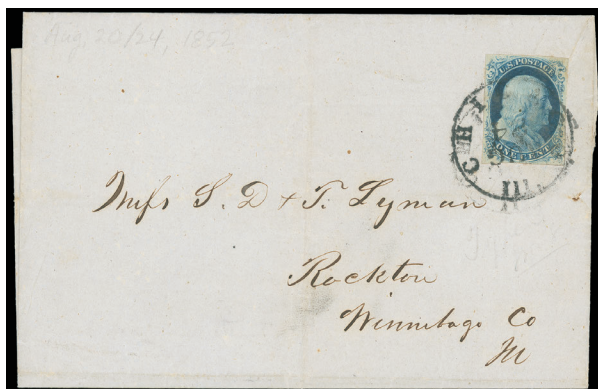 Aug. 20/24, 1852
U.S. POSTAGE
ONE CENT
CH
Ill.
Mess S. D & T. Lyman
Rockton
Winnebago Co
Ill